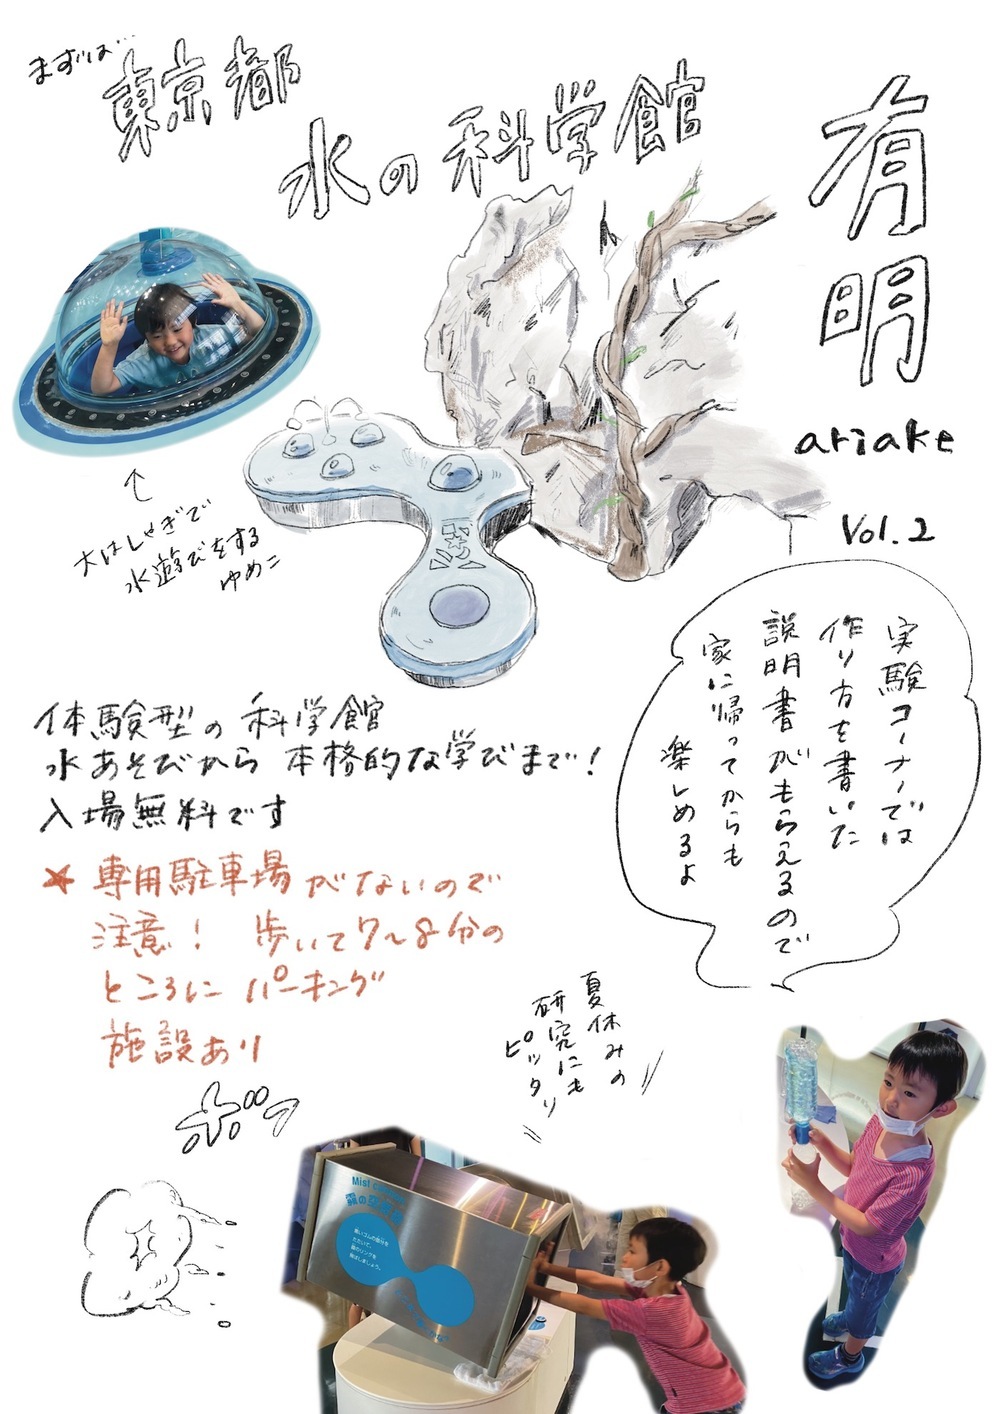 まずは…
東京都
水の科学館
有明
ariake
Vol.2
大はしゃぎで
水遊びをする
ゆめこ
実験コーナーでは
作り方を書いた
説明書がもらえるので
家に帰ってからも
楽しめるよ
体験型の科学館
水あそびから本格的な学びまで!
入場無料です
★専用駐車場がないので
注意! 歩いて7〜8分の
ところにパーキング
施設あり
夏休みの
研究にも
ピッタリ
ボッ
Mist
霧の